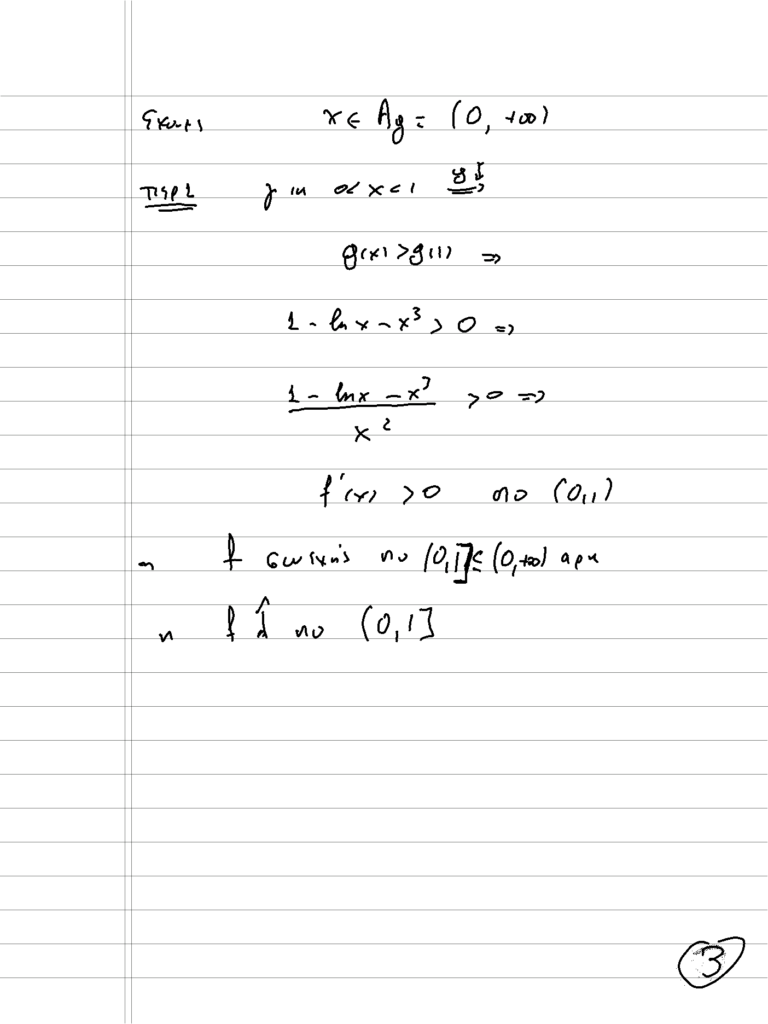 έχουμε x ∈ Ag = (0, +∞)
περ 1 για 0 < x < 1 g↓ ⇒
g(x) > g(1) ⇒
1 - ln x - x³ > 0 ⇒
1 - lnx - x³ / x² > 0 ⇒
f'(x) > 0 στο (0,1)
η f συνεχής στο (0,1] ⊆ (0,+∞) αρα
η f ↑ στο (0,1]
3